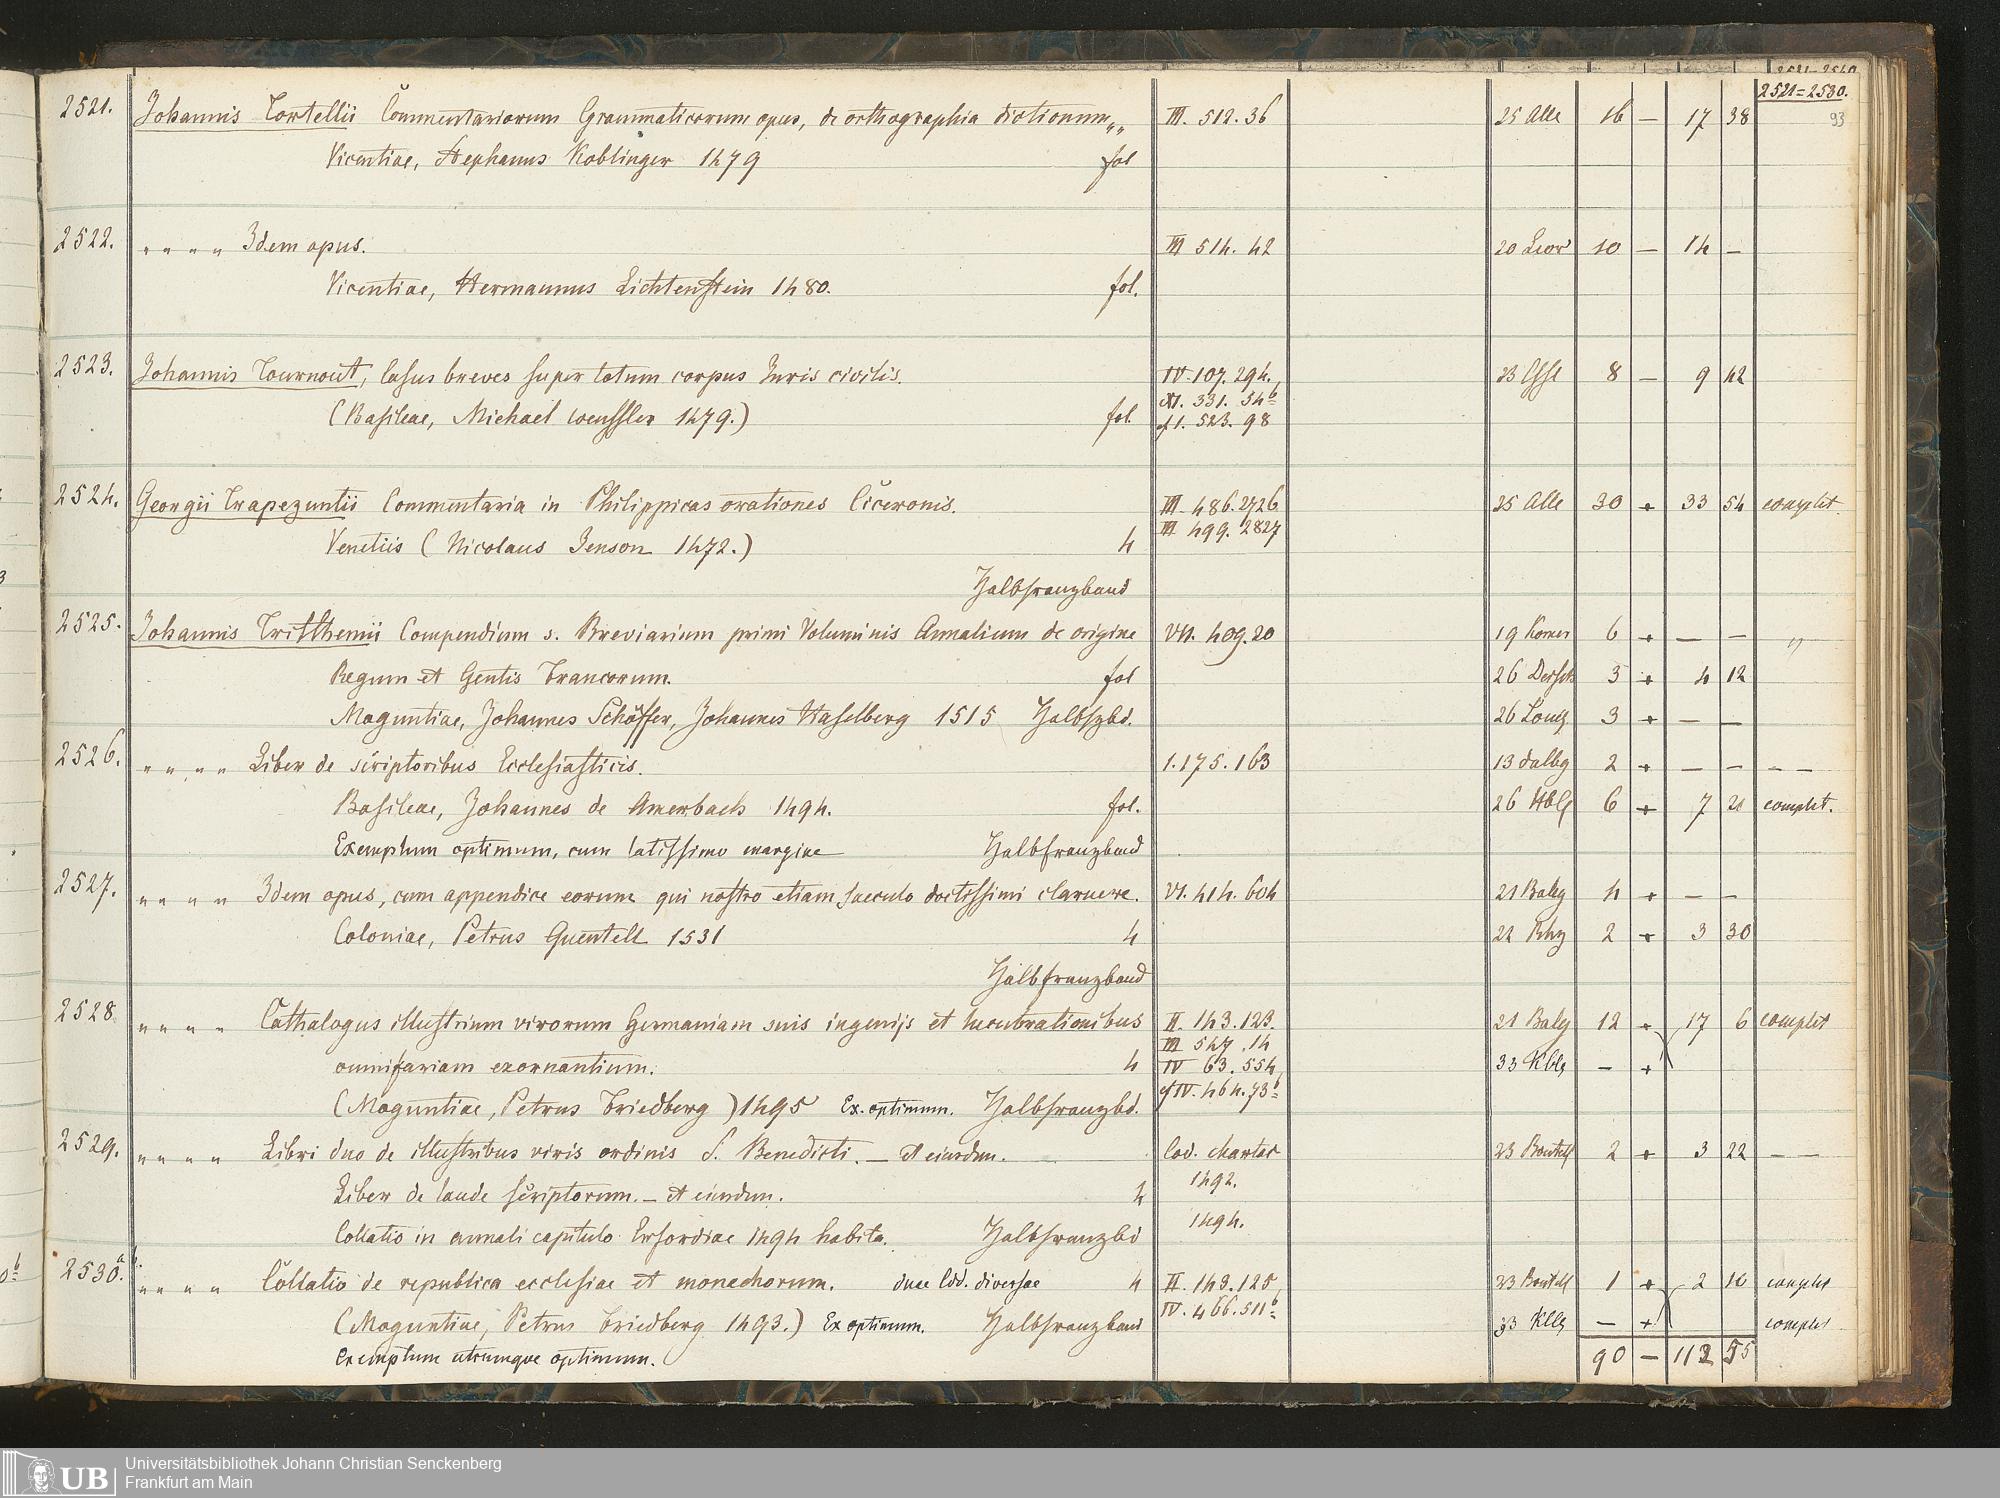 2521=2530.
93
2521. Johannis Tortellii Commentariorum Grammaticorum opus, de orthographia dictionum„„ III. 512. 36 25 Alle 16 — 17 38
Vicentiae, Stephanus Koblinger 1479 fol
2522. " " " " Idem opus. III 514. 42 20 10 — 14 —
Vicentiae, Hermannus Lichtenstein 1480. fol.
2523. Johannis Tournout, Casus breves super totum corpus Juris civilis. IV. 107. 294, 8 — 9 42
XI. 331. 54b
(Basileae, Michael Wenssler 1479.) fol. cf 1. 523. 98
2524. Georgii Trapezuntii Commentaria in Philippicas orationes Ciceronis. III. 486. 2726 25 Alle 30 + 33 54 complet.
Venetiis (Nicolaus Jenson 1472.) 4 III 499. 2827
Halbfranzband
2525. Johannis Tritthemii Compendium s. Breviarium primi Voluminis Annalium de origine VII. 409. 20 19 6 + — — "
Regum et Gentis Francorum. fol 26 Dersch 3 + 4 12
Moguntiae, Johannes Schöffer, Johannes Haselberg 1515 Halbfzbd. 26 3 + — —
2526. " " " " Liber de scriptoribus Ecclesiasticis. 1. 175. 163 13 dalbg 2 + — — — —
Basileae, Johannes de Amerbach 1494. fol. 26 6 + 7 20 complet.
Exemplum optimum, cum latissimo margine Halbfranzband
2527. " " " " Idem opus, cum appendice eorum qui nostro etiam saeculo doctissimi claruere. VI. 414. 604 21 4 + — —
Coloniae, Petrus Quentell 1531 4 22 2 + 3 30
Halbfranzband
2528 " " " " Cathalogus illustrium virorum Germaniam suis ingenijs et lucubrationibus II. 143. 123. 21 12 + 17 6 complet
III 547. 14
omnifariam exornantium. 4 IV 63. 554, 33 — +
(Moguntiae, Petrus Friedberg) 1495 Ex. optimum. Halbfranzbd. cf IV. 464. 73b
2529. " " " " Libri duo de illustribus viris ordinis S. Benedicti. — et eiusdem. Cod. chartac 23 2 + 3 22 — —
Liber de laude scriptorum. — et eiusdem. 4 1492.
Collatio in annali capitulo Erfordiae 1494 habita. Halbfranzbd 1494.
2530.a.b. " " " " Collatio de republica ecclesiae et monachorum. duae Edd. diversae 4 II. 143. 125, 23 1 + 2 10 complet
(Moguntiae, Petrus Friedberg 1493.) Ex optimum. Halbfranzband IV. 466. 511b 33 — + complet
Exemplum utrumque optimum. 90 — 112 55
UB
Universitätsbibliothek Johann Christian Senckenberg
Frankfurt am Main